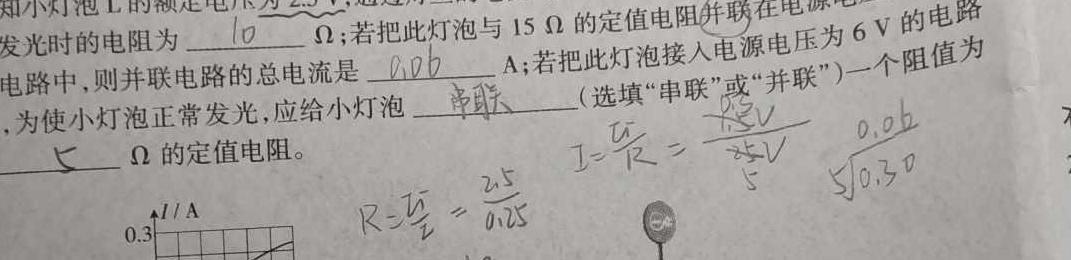 知小灯泡 L 的额定电压为 2.5 V,
发光时的电阻为 10 Ω;若把此灯泡与 15 Ω 的定值电阻并联在电源
电路中,则并联电路的总电流是 0.06 A;若把此灯泡接入电源电压为 6 V 的电路
,为使小灯泡正常发光,应给小灯泡 串联 (选填“串联”或“并联”)一个阻值为
5 Ω 的定值电阻。
I = U/R = V/25V 5
0.06
5 0.30
R = U/I = 2.5/0.25
I / A
0.3